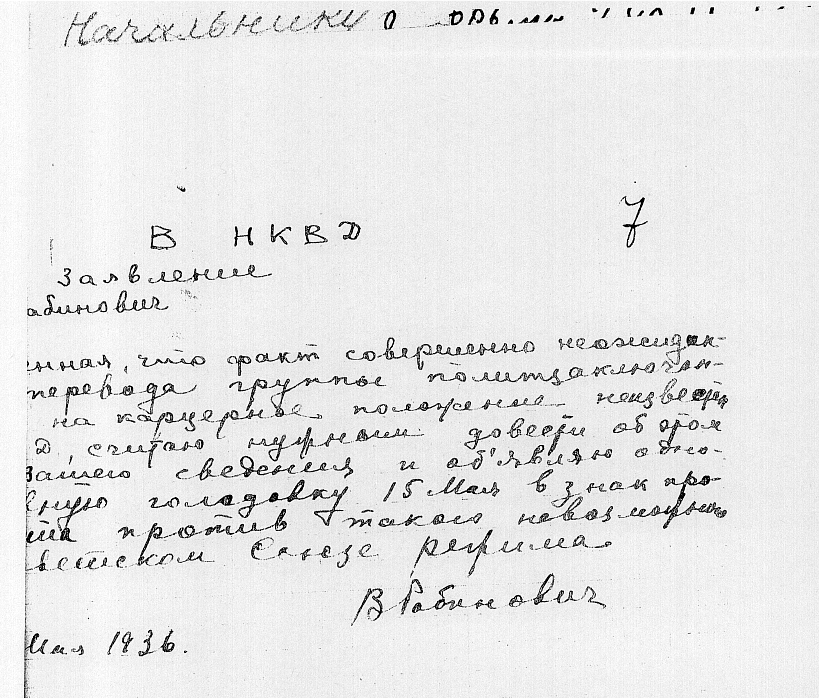 Начальнику
7
В НКВД
Заявление
абинович
нная, что факт совершенно неожидан-
перевода группы политзаключен-
на карцерное положение неизвестн
Д, считаю нужным довести об этом
Вашего сведения и об'являю одно-
вную голодовку 15 Мая в знак про-
та против такого невозможного
ветском Союзе режима.
В Рабинович
Мая 1936.